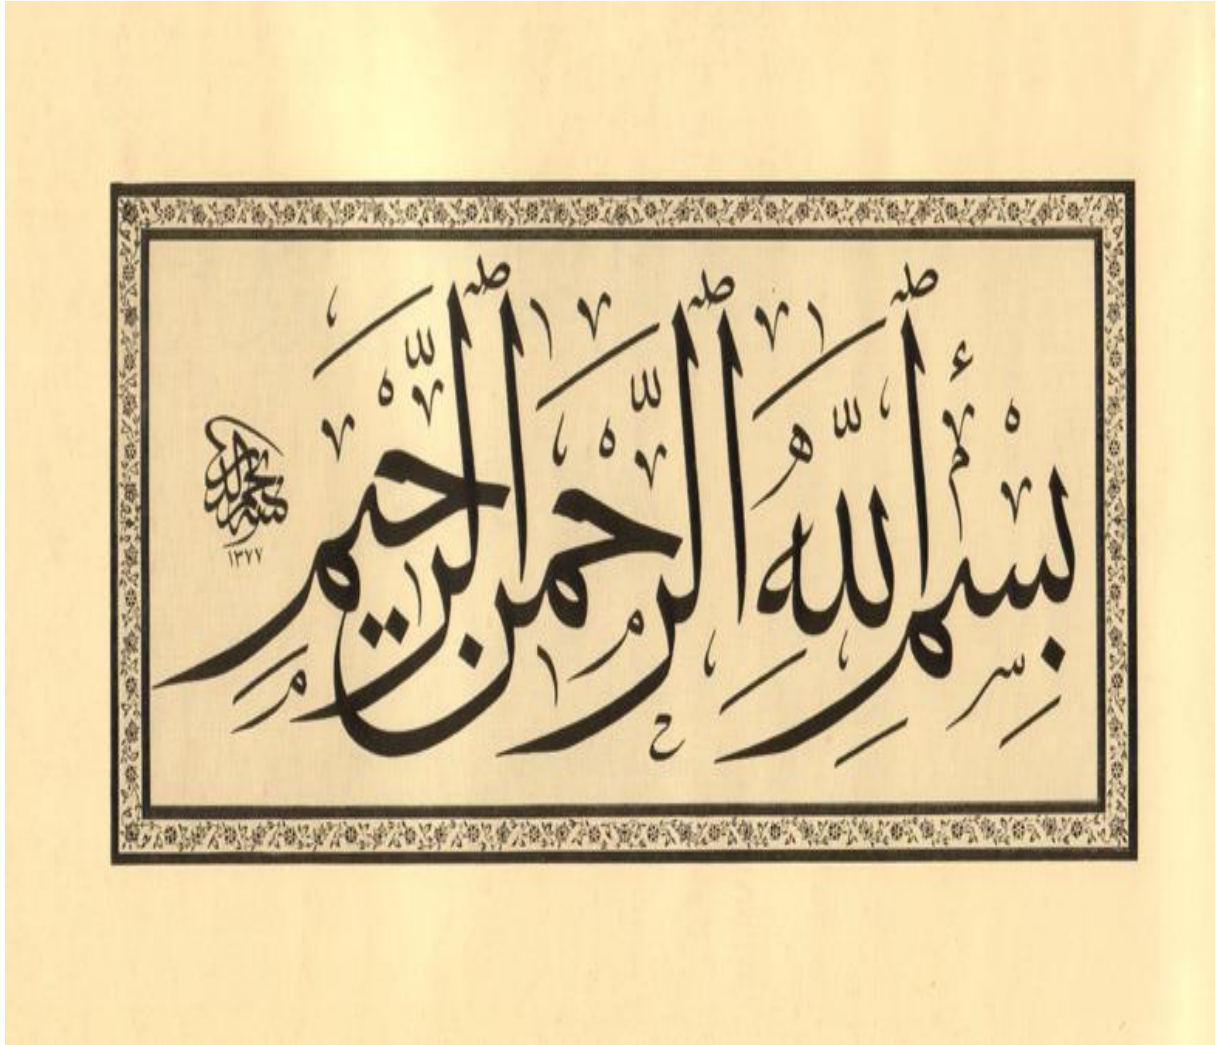 بِسْمِ ٱللَّهِ ٱلرَّحْمَٰنِ ٱلرَّحِيمِ
١٣٧٧